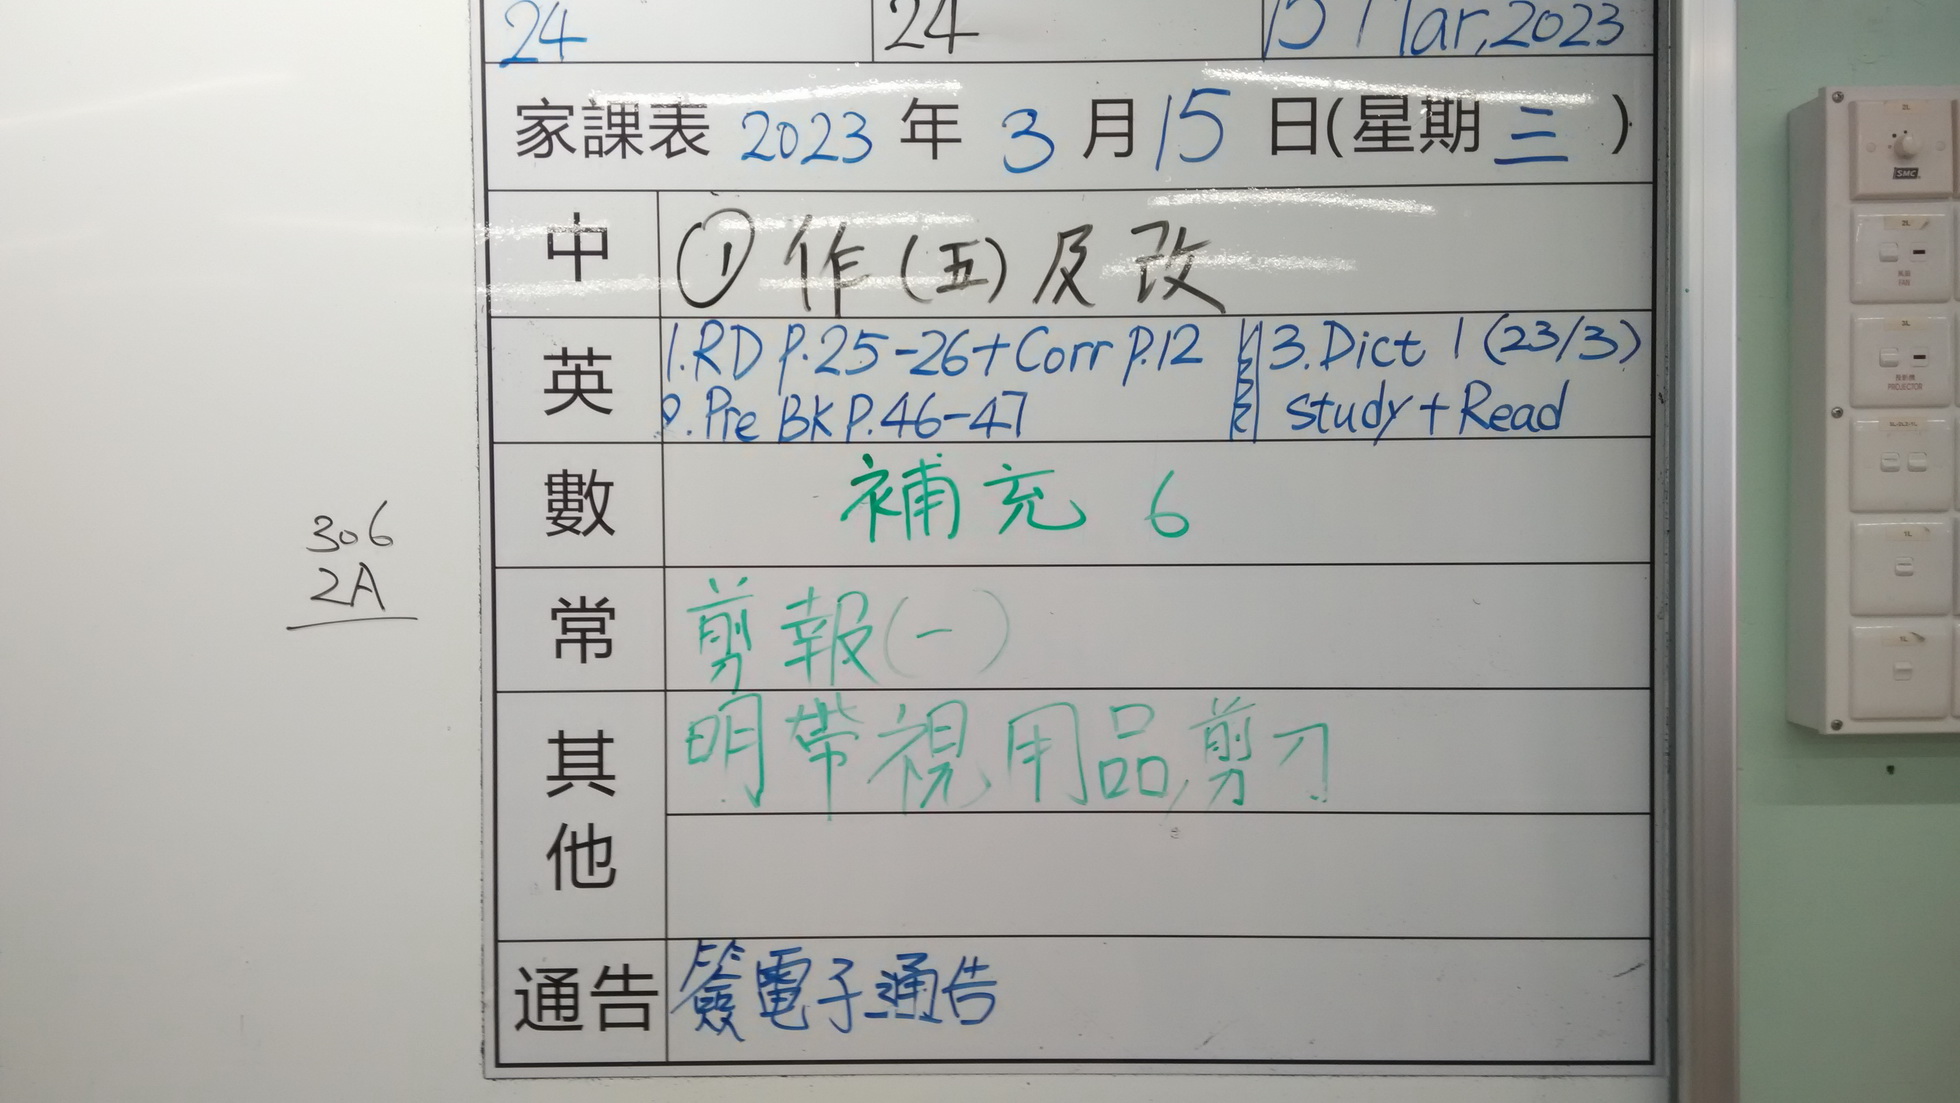 24 24 15 Mar, 2023
家課表 2023 年 3 月 15 日(星期 三 )
中 ① 作 (五) 及 改
英
1. RD P.25-26 + Corr P.12
2. Pre BK P.46-47
3. Dict 1 (23/3)
study + Read
數 補充 6
常 剪報(一)
其他
明帶視用品,剪刀
通告 簽電子通告
306
2A
SMC
PROJECTOR